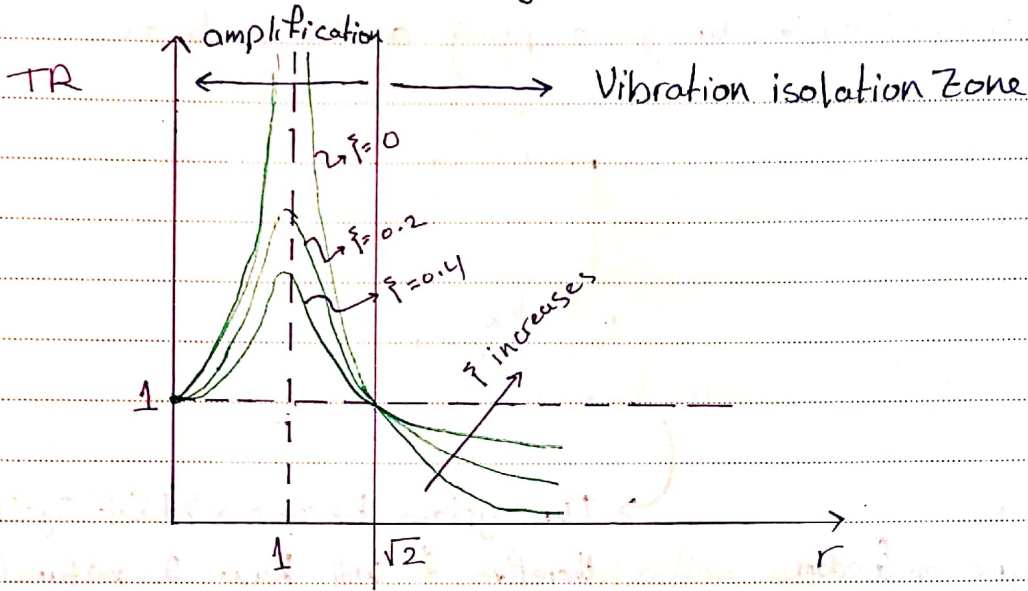 amplification
TR
Vibration isolation Zone
ξ=0
ξ=0.2
ξ=0.4
ξ increases
1
1
√2
r